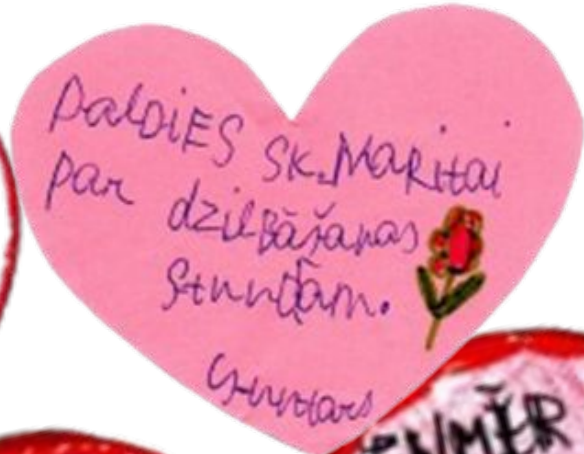 PALDIES SK. MARITAI
par dziedāšanas
stundām.
Gunārs
VMĒR